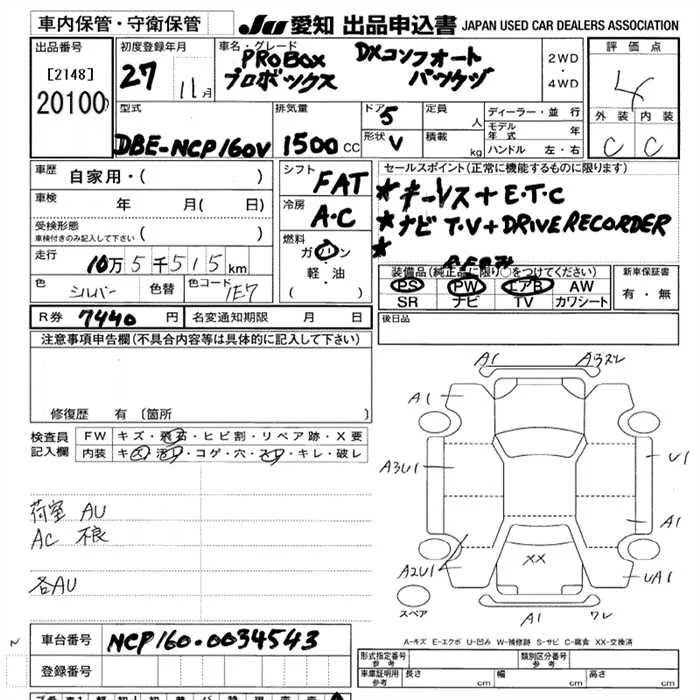 車内保管・守衛保管
JU 愛知 出品申込書 JAPAN USED CAR DEALERS ASSOCIATION
出品番号
[2148]
20100
初度登録年月
27 11月
車名・グレード
PROBOX DXコンフォート
プロボックス パッケージ
2WD
・
4WD
評価点
4
外装 内装
C C
型式
DBE-NCP160V
排気量
1500 CC
ドア 5
形状 V
定員 人
積載 kg
ディーラー・並行
モデル年式 年
ハンドル 左・右
車歴 自家用・( )
車検 年 月( 日)
受検形態
車検付きのみ記入して下さい ( )
走行 10万5千515km
色 シルバー 色替 色コード 1E7
シフト
FAT
冷房
A・C
燃料
ガソリン
・
軽・油
( )
セールスポイント(正常に機能するものに限ります)
★キーレス+E・T・C
★ナビ T・V+DRIVE RECORDER
★
装備品(純正品に限り○をつけてください)
PS PW エアB AW
SR ナビ TV カワシート
新車保証書
有・無
R券 7440 円 名変通知期限 月 日
後日品
注意事項申告欄(不具合内容等は具体的に記入して下さい)
修復歴 有 [箇所
検査員記入欄
FW キズ・飛石・ヒビ割・リペア跡・X要
内装 キズ・汚れ・コゲ・穴・スレ・キレ・破レ
荷室 AU
AC 不良
各AU
A1 A3スレ
A1
A3U1 U1
A1
A2U1 UA1
XX
スペア
A1 ワレ
A-キズ E-エクボ U-凹み W-補修跡 S-サビ C-腐食 XX-交換済
車台番号 NCP160-0034543
登録番号
形式指定番号 参考 類別区分番号 参考
車庫証明用 参考 長さ cm 幅 cm 高さ cm